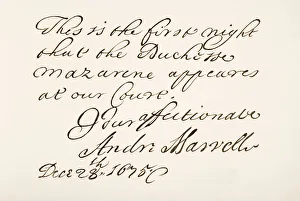 This is the first night
that the Duchesse
Mazarine appeares
at our Court.
Your affectionate
Andr: Marvell
Decr 28th. 1675